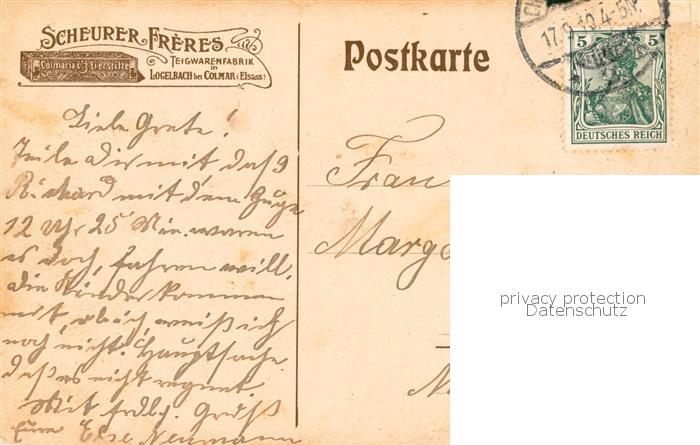 SCHEURER-FRÈRES
TEIGWARENFABRIK
in
LOGELBACH bei COLMAR (Elsass)
Postkarte
17.9.10.4-5N.
5 5
DEUTSCHES REICH
Liebe Grete!
Teile dir mit daß
Richard mit dem Zuge
12 Uhr 25 Min.
es doch, fahren will,
die Kinder kommen
mit, weiß ich
noch nicht. Hauptsache
daß es nicht regnet.
Mit frdl. Gruß
Eure Else Neumann
Frau
Marg
N
privacy protection
Datenschutz